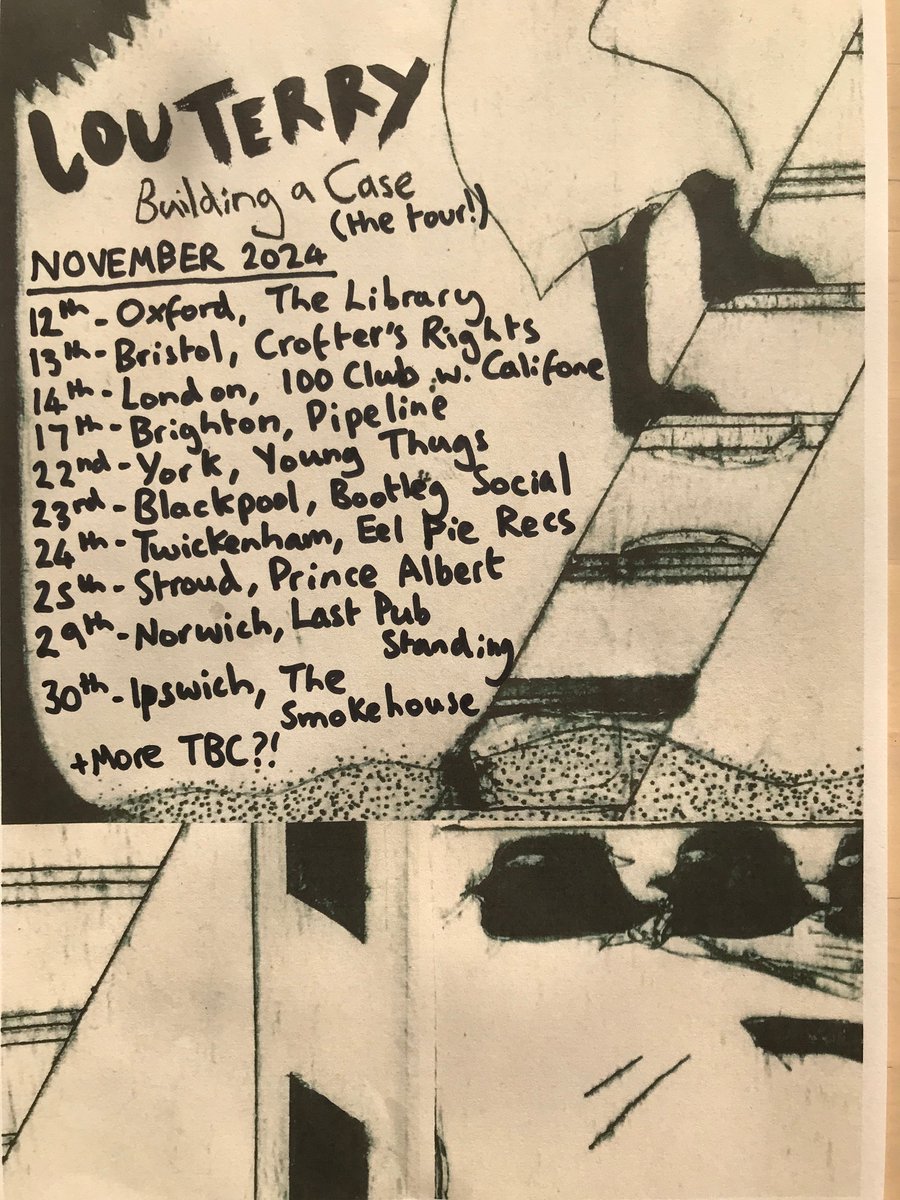 LOU TERRY
Building a Case
(the tour!)
NOVEMBER 2024
12th - Oxford, The Library
13th - Bristol, Crofter's Rights
14th - London, 100 Club w. Califone
17th - Brighton, Pipeline
22nd - York, Young Thugs
23rd - Blackpool, Bootleg Social
24th - Twickenham, Eel Pie Recs
25th - Stroud, Prince Albert
29th - Norwich, Last Pub
Standing
30th - Ipswich, The
Smokehouse
+ More TBC?!